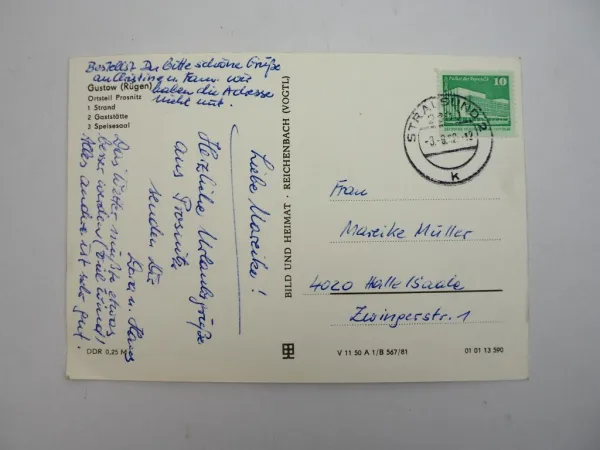 Bestellst Du bitte schöne Grüße
an Christing u. Fam. wir
haben die Adresse
nicht mit.
Gustow (Rügen)
Ortsteil Prosnitz
1 Strand
2 Gaststätte
3 Speisesaal
Liebe Mareike!
Herzliche Urlaubsgrüße
aus Prosnitz
senden Dir
Dora u. Hans
Das Wetter müßte etwas
besser werden (viel Wind)
alles andere ist sehr gut.
DDR 0,25 M
BILD UND HEIMAT · REICHENBACH (VOGTL)
10
Palast der Republik
STRALSUND 2
K
Frau
Mareike Müller
4020 Halle/Saale
Zwingerstr. 1
V 11 50 A 1/B 567/81
01 01 13 590